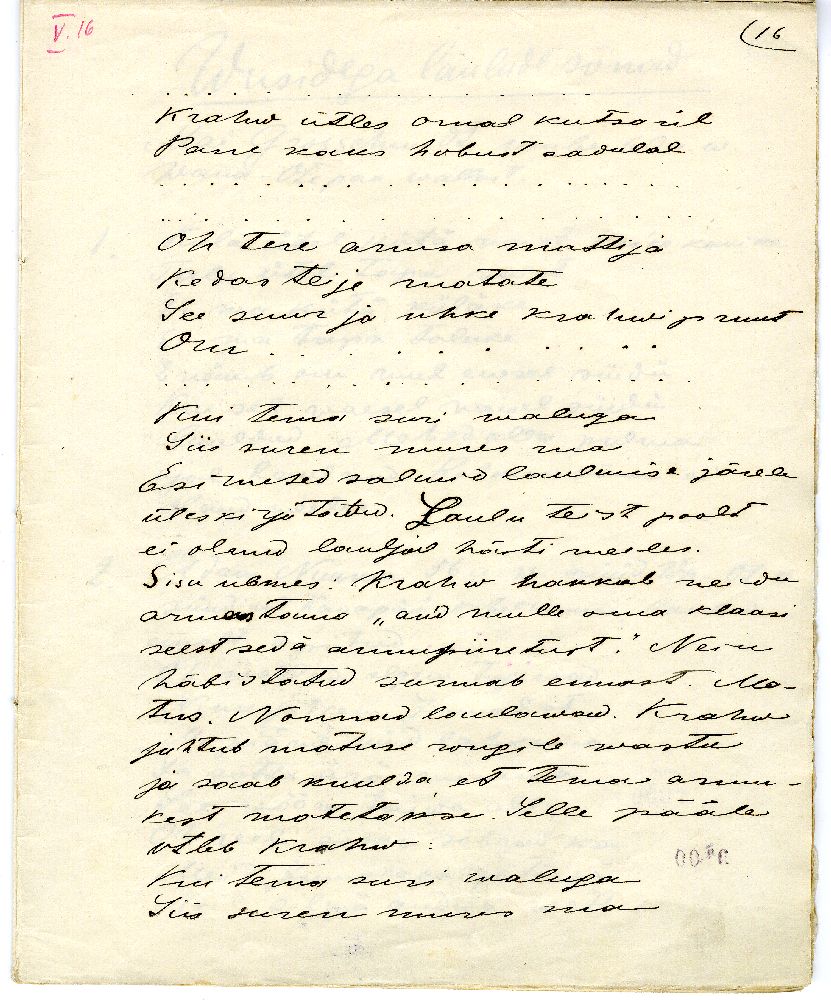 V. 16
(16
. . . . . . . . . . . . . .
Krahw ütles omal kutsaril
Pane kaks hobust sadulal
. . . . . . . . . . . . . . . .
. . . . . . . . . . . . . . . .
Oh tere armsa mattija
Kedas teije matate
See suur ja uhke krahwi pruut
On . . . . . . . .
. . . . . . . . . . . . . . .
Kui tema suri waluga
Siis suren mures ma
Esimesed salmid laulmise järele
üleskirjutatud. Laulu teist poolt
ei olnud lauljal hästi meeles.
Sisu umbes: Krahw hakkab neidu
armastama „and mulle oma klaasi
seest sedä armupiiretust." Neiu
häbistatud surmab ennast. Ma-
tus. Nonnad laulawad. Krahw
juhtub matuse rongile wastu
ja saab kuulda, et tema armu-
kest matetakse. Selle pääle
ütleb Krahw:
Kui tema suri waluga
Siis suren mures ma